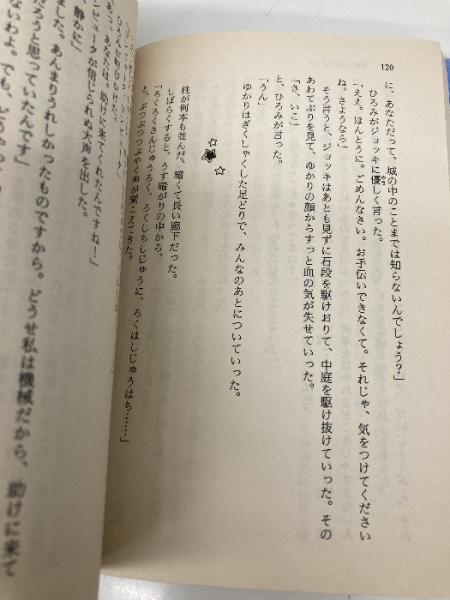 120
に、あなただって、城の中のことまでは知らないんでしょう？」
ひろみがジョッキに優しく言った。
「ええ。ほんとうに。ごめんなさい。お手伝いできなくて。それじゃ、気をつけてください
ね。さようなら」
そう言うと、ジョッキはあとも見ずに石段を駆けおりて、中庭を駆け抜けていった。その
あわてぶりを見て、ゆかりの顔からすっと血の気が失せていった。
「さ、いこ」
と、ひろみが言った。
「うん」
ゆかりはぎくしゃくした足どりで、みんなのあとについていった。
柱が何本も並んだ、暗くて長い廊下だった。
しばらくすると、うす暗がりの中から、
「ろくろくさんじゅうろく、ろくしちしじゅうに、ろくはしじゅうはち……」
と、ぶつぶつつぶやく声が聞こえてきた。
あなたは。助けに来てくれたんですね！」
ンピュータが信じられぬ声を出した。
静かに」
ました。あんまりうれしかったものですから。どうせ私は機械だから、助けに来て
だろうと思っていたんです」
ないわよ。でも、どう